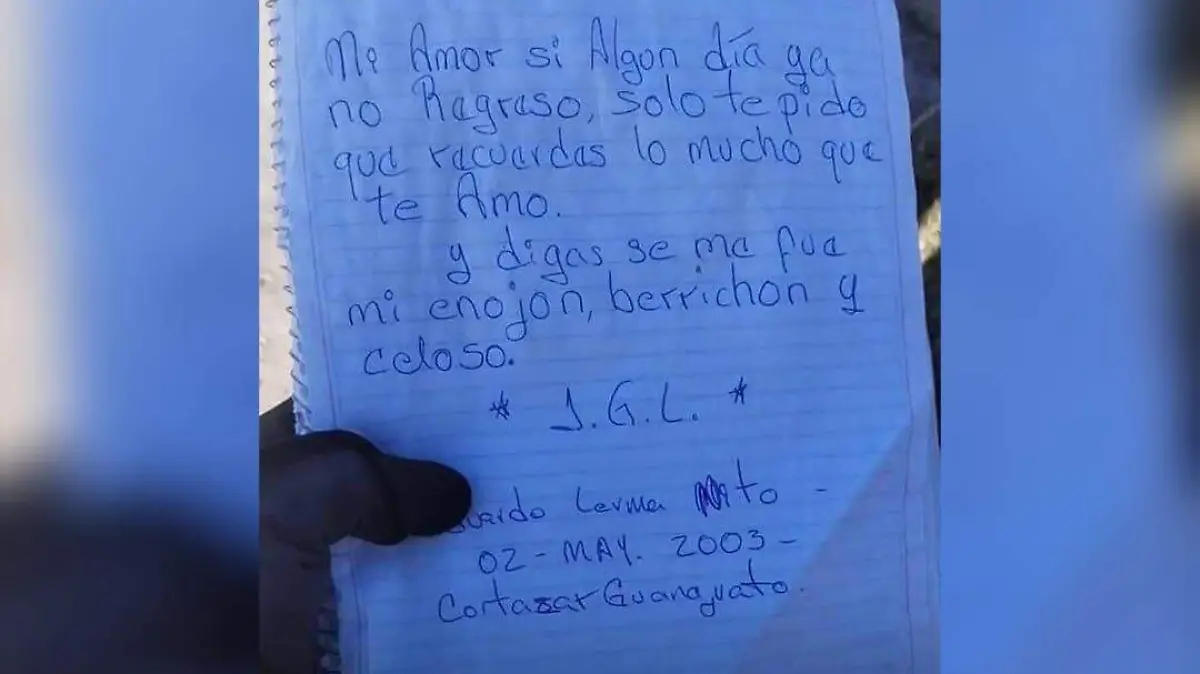 Mi Amor si Algon día ya
no Ragraso, solo te pido
qua racuardas lo mucho qua
te Amo.
y digas se ma fua
mi enojon, berrichon y
celoso.
* J.G.L. *
Lerma -
02 - MAY. 2003 -
Cortazar Guanajuato.